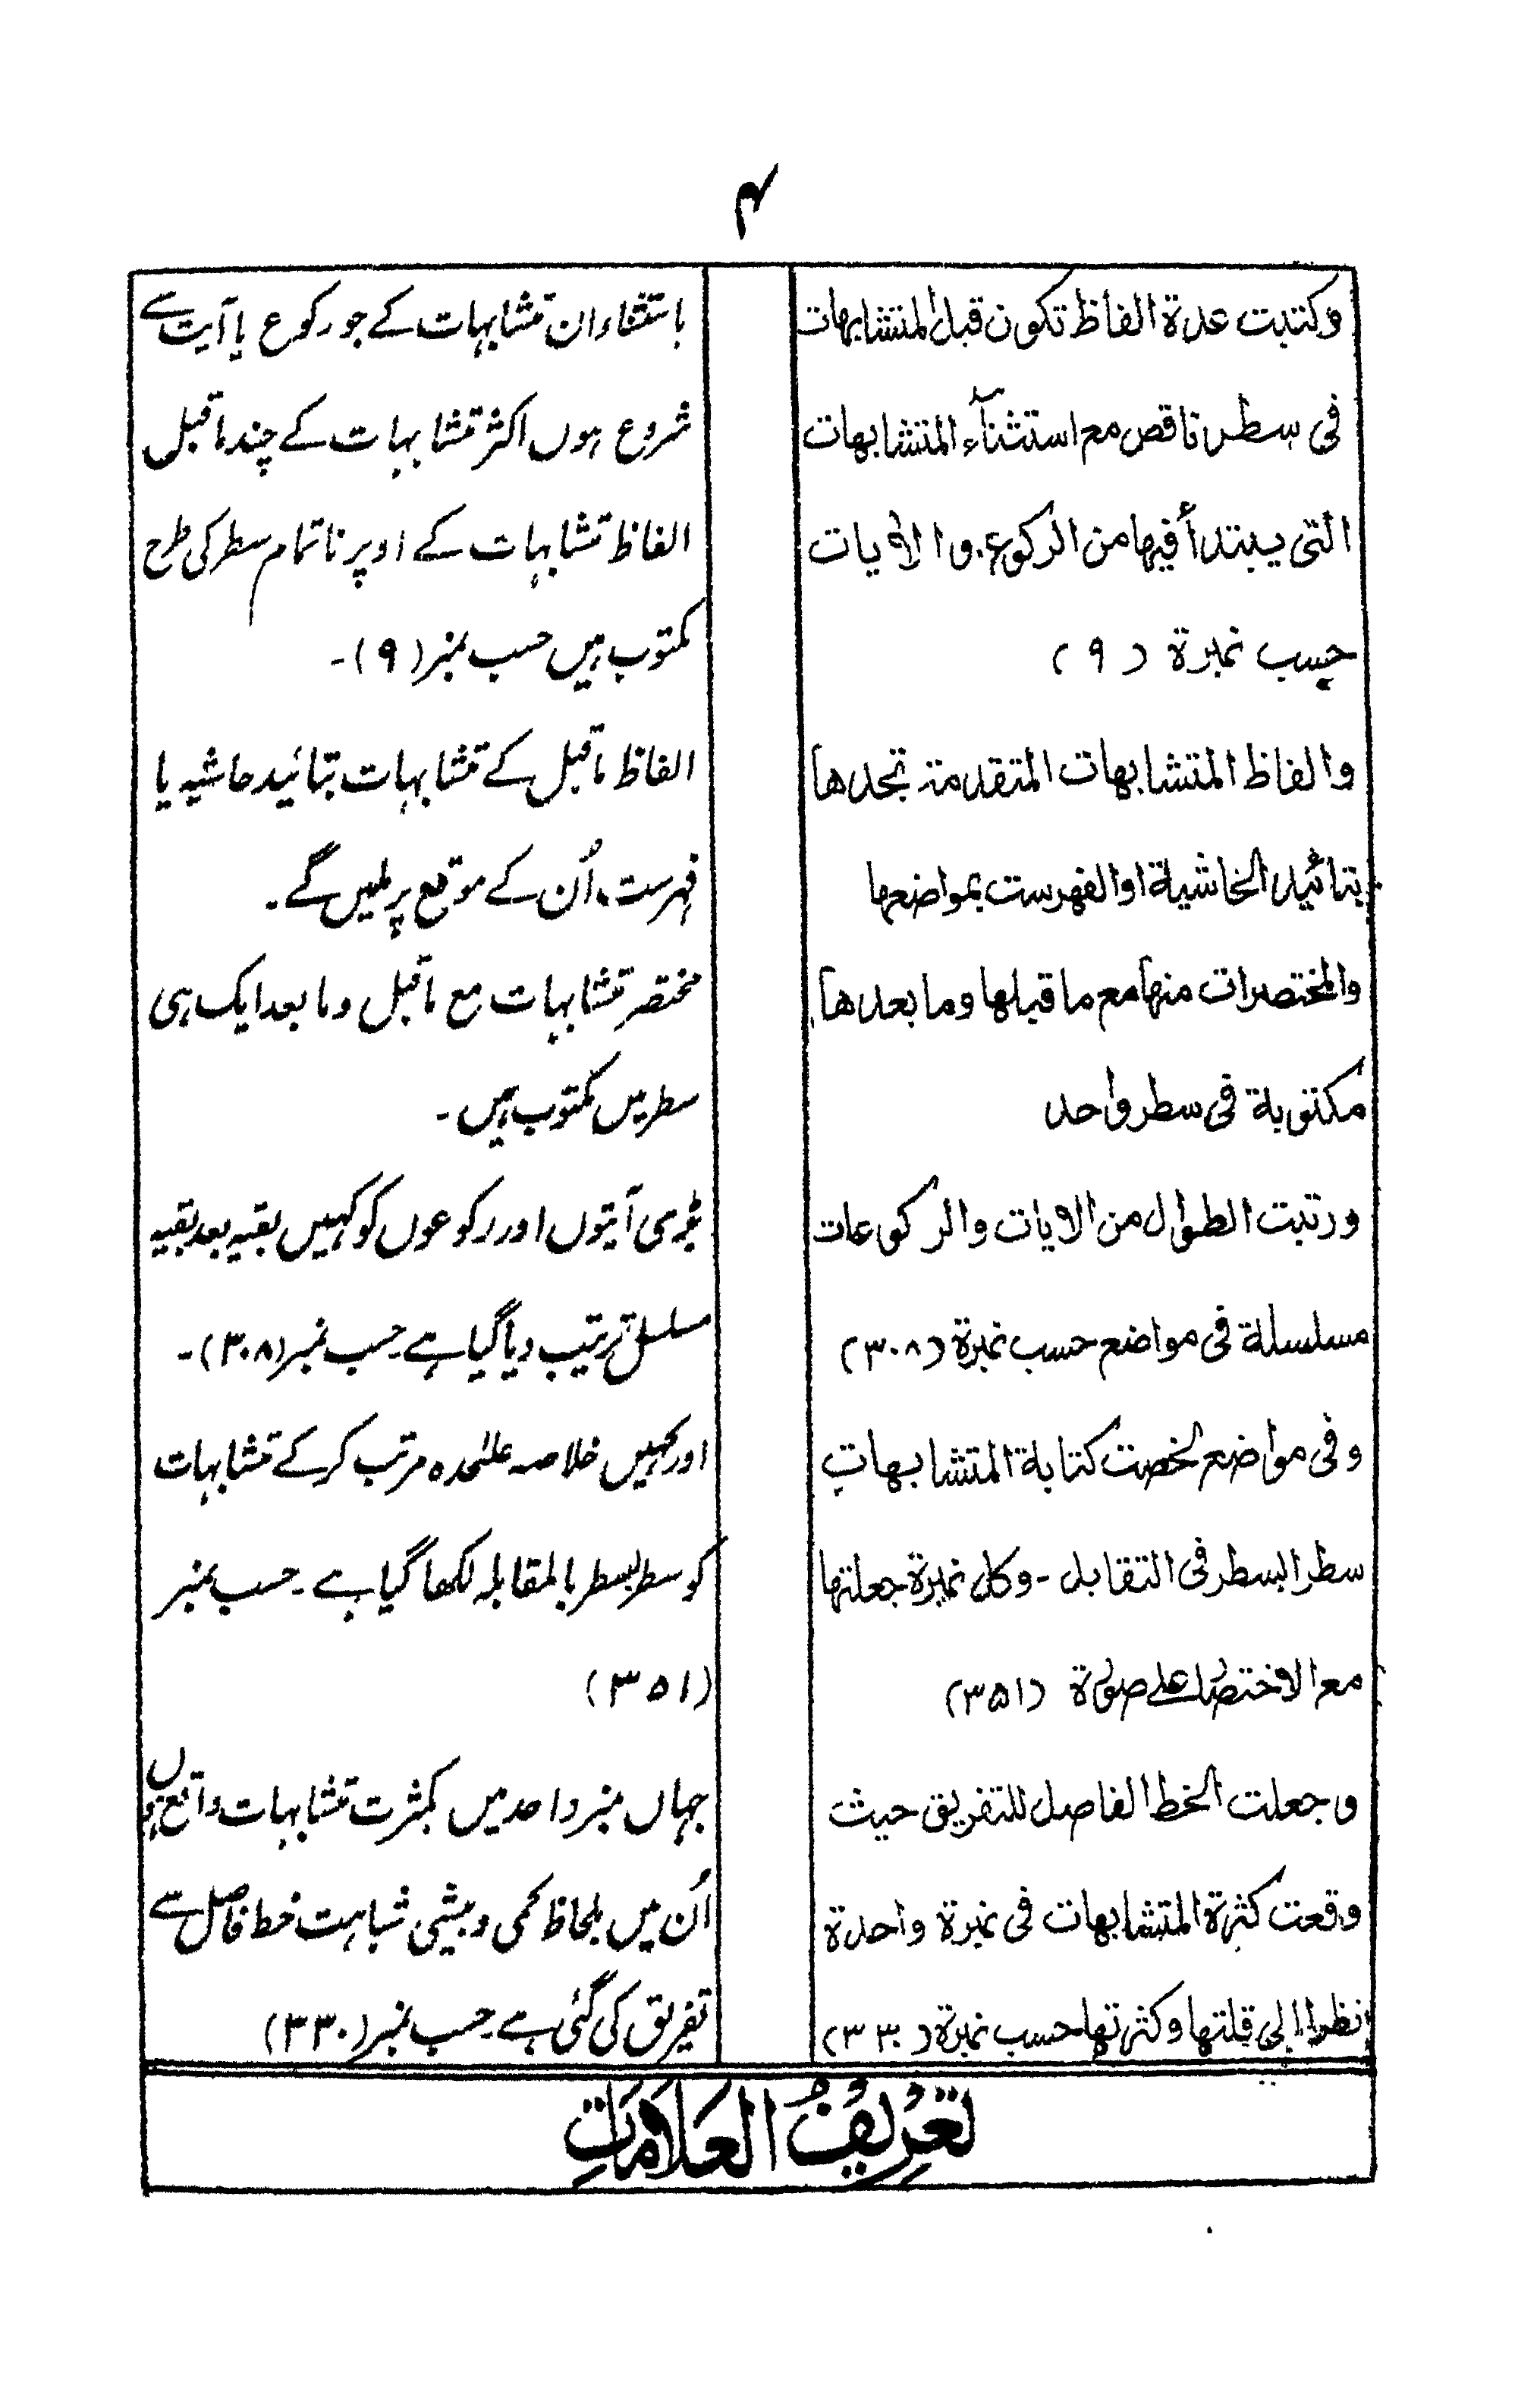 ۴
وكتبت عدة الفاظ تكون قبل المتشابهات
فى سطر ناقص مع استثناء المتشابهات
التى يبتدأ فيها من الركوع والاٰيات
حسب نمبرة (۹)
والفاظ المتشابهات المتقدمة تجدها
بتائيد الحاشية او الفهرست بمواضعها
والمختصرات منها مع ما قبلها وما بعدها
مكتوبة فى سطر واحد
ورتبت الطوال من الاٰيات والركوعات
مسلسلة فى مواضع حسب نمبرة (۳۰۸)
وفى مواضع لخصت كتابة المتشابهات
سطرا بسطر فى التقابل - وكل نمبرة جعلتها
مع الاختصار على صورة (۳۵۱)
وجعلت الخط الفاصل للتفريق حيث
وقعت كثرة المتشابهات فى نمبرة واحدة
نظرا الى قلتها وكثرتها حسب نمبرة (۳۳۰)
باستثناء ان متشابہات کے جو رکوع یا آیت سے
شروع ہوں اکثر متشابہات کے چند ماقبل
الفاظ متشابہات کے اوپر ناتمام سطر کی طرح
مکتوب ہیں حسب نمبر (۹)۔
الفاظ ماقبل کے متشابہات بتائید حاشیہ یا
فہرست، اُن کے موقع پر ملیں گے۔
مختصر متشابہات مع ماقبل و ما بعد ایک ہی
سطر میں مکتوب ہیں۔
بڑی آیتوں اور رکوعوں کو کہیں بقیہ بعد بقیہ
مسلسل ترتیب دیا گیا ہے حسب نمبر (۳۰۸)۔
اور کہیں خلاصہ علٰحدہ مرتب کر کے متشابہات
کو سطر بسطر بالمقابلہ لکھا گیا ہے۔ حسب نمبر
(۳۵۱)
جہاں نمبر واحد میں بکثرت متشابہات واقع ہوں
اُن میں بلحاظ کمی و بیشی شباہت خط فاصل سے
تفریق کی گئی ہے۔ حسب نمبر (۳۳۰)
تَعْرِيْفُ الْعَلَامَاتِ